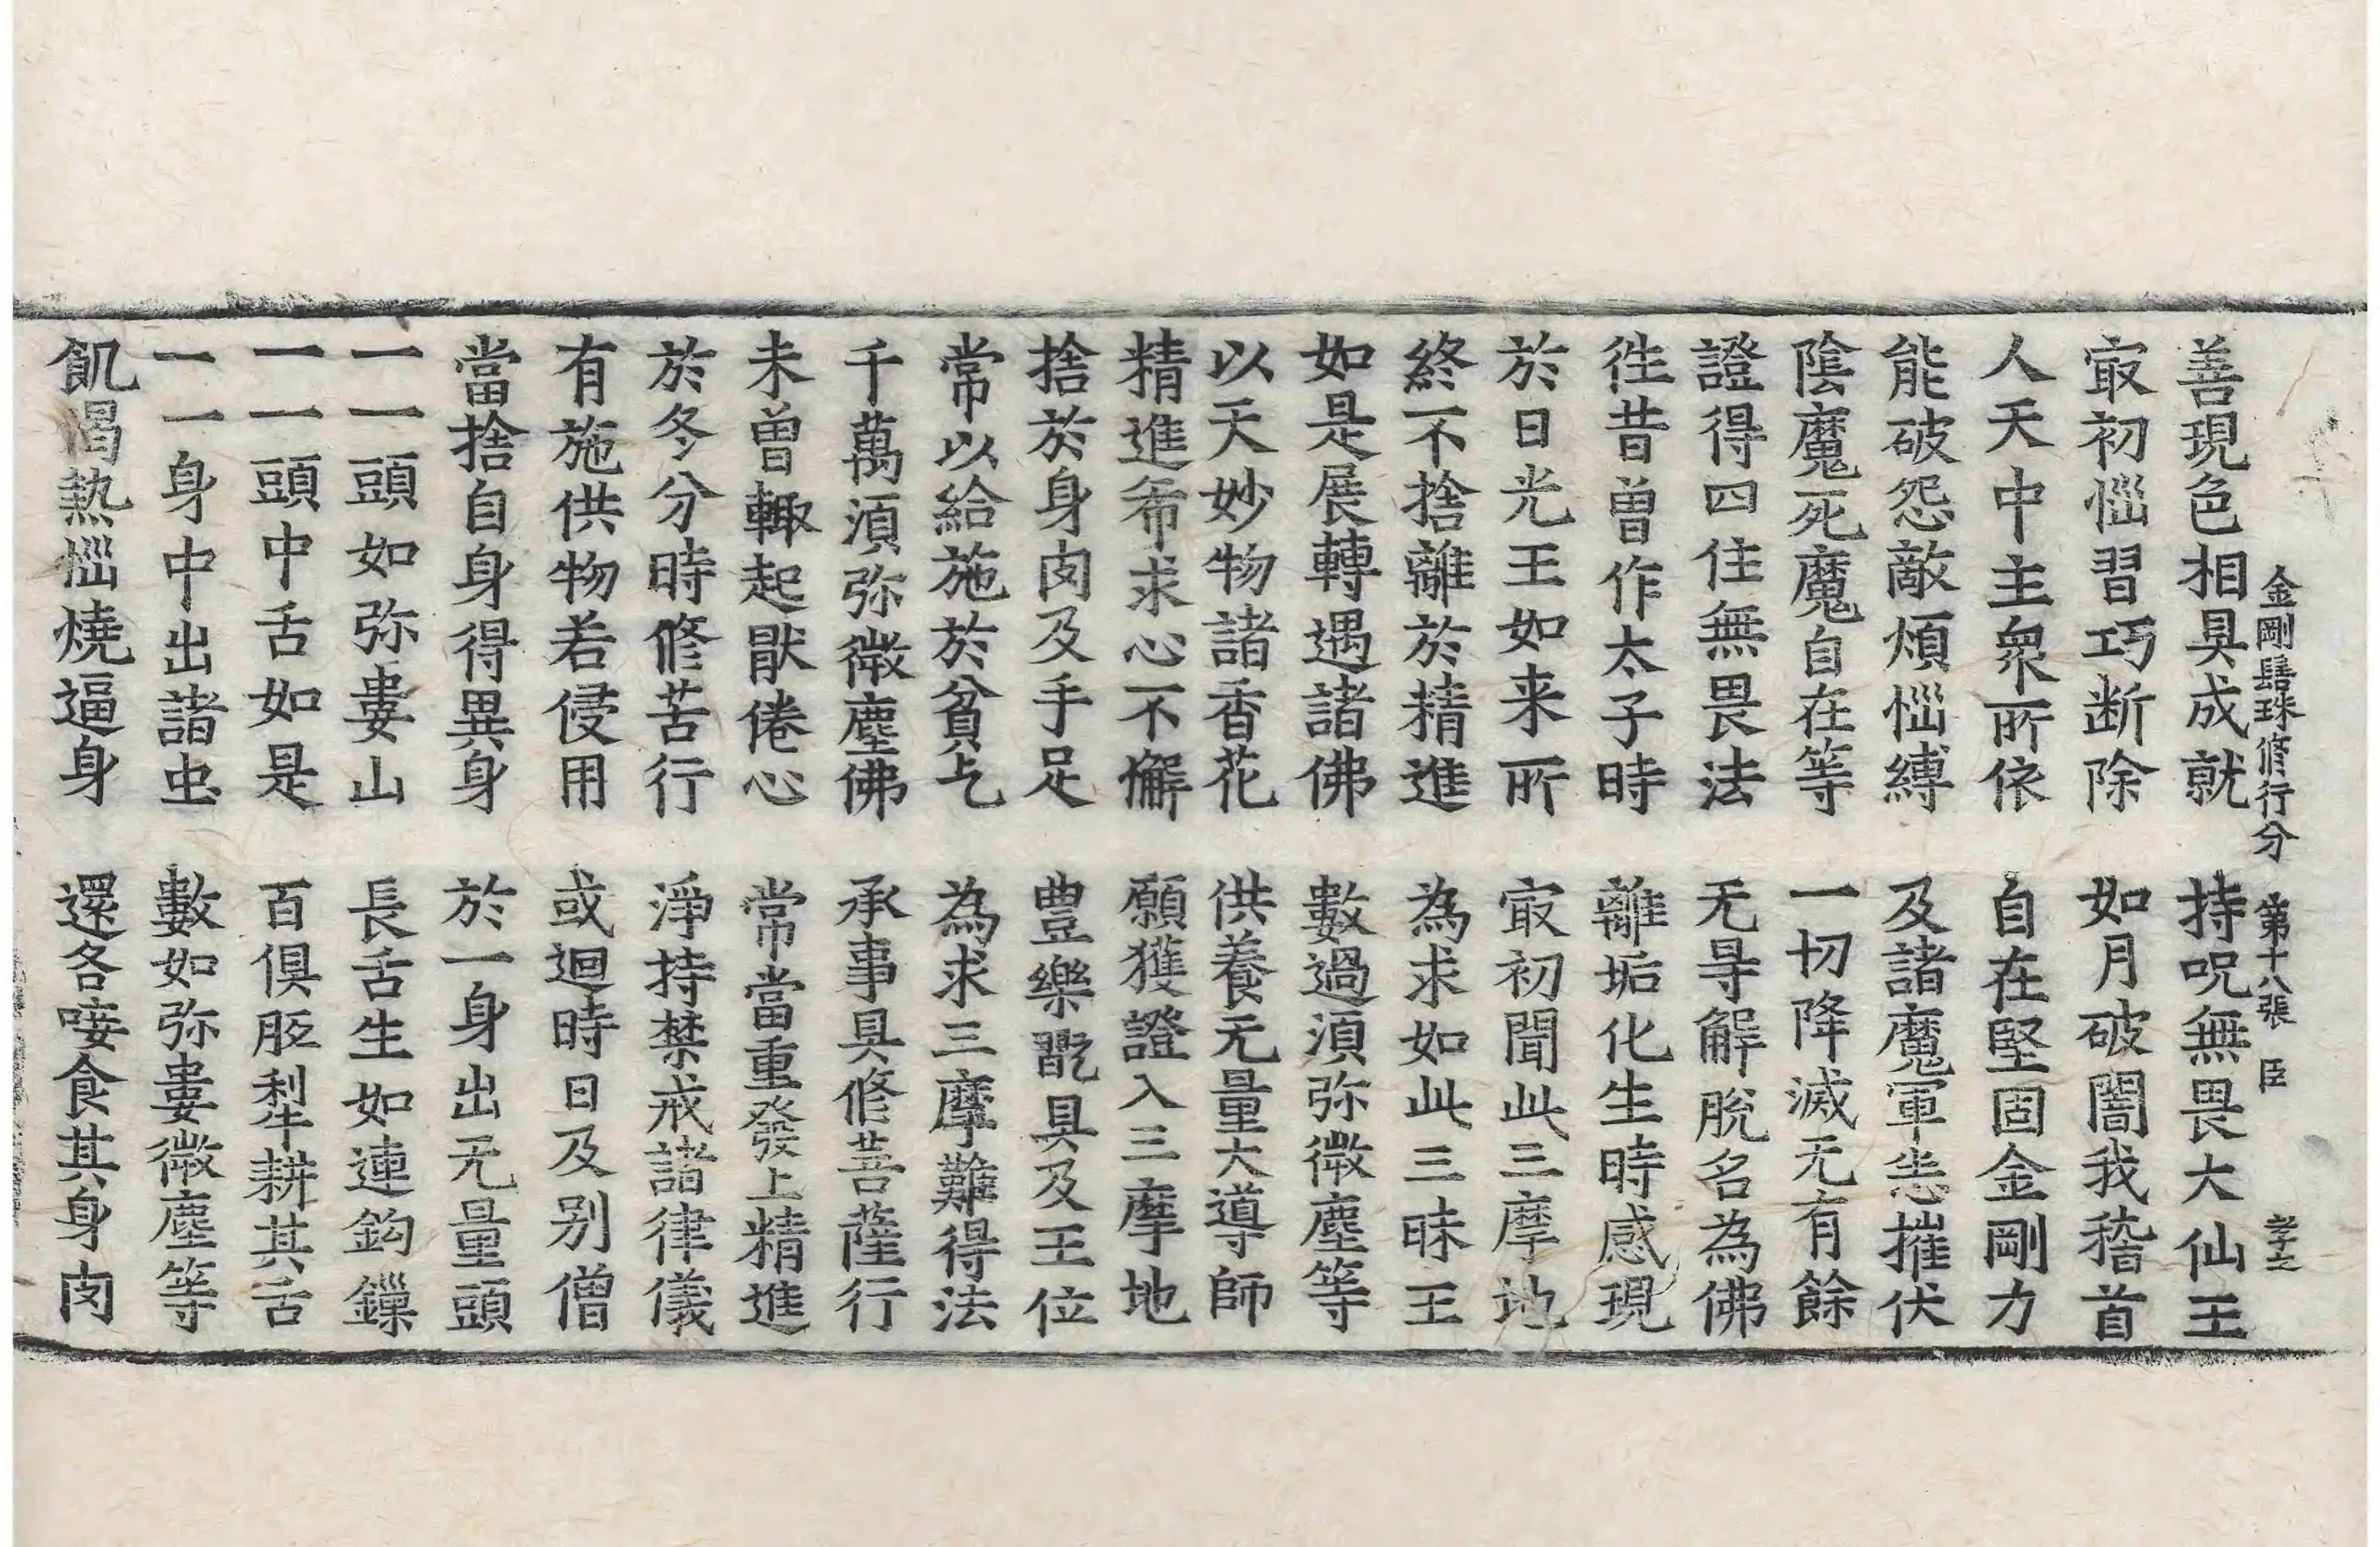 金剛髻珠修行分 第十八張 臣 孝之
善現色相具成就 持呪無畏大仙王
㝡初惱習巧断除 如月破闇我稽首
人天中主衆所依 自在堅固金剛力
能破怨敵煩惱縛 及諸魔軍恙摧伏
陰魔死魔自在等 一切降滅无有餘
證得四住無畏法 无㝵解脫名為佛
徃昔曽作太子時 離垢化生時感現
於日光王如来所 㝡初聞此三摩地
終不捨離於精進 為求如此三昧王
如是展轉遇諸佛 數過湏弥微塵等
以天妙物諸香花 供養无量大導師
精進希求心不懈 願獲證入三摩地
捨於身肉及手足 豊樂翫具及王位
常以給施於貧乞 為求三摩難得法
千萬湏弥微塵佛 承事具修菩薩行
未曽輙起猒倦心 常當重發上精進
於冬分時修苦行 淨持禁戒諸律儀
有施供物若侵用 或迴時日及別僧
當捨自身得異身 於一身出无量頭
一一頭如弥婁山 長舌生如連鈎鏁
一一頭中舌如是 百俱胝犁耕其舌
一一身中出諸虫 數如弥婁微塵等
飢渴熱惱燒逼身 還各唼食其身肉